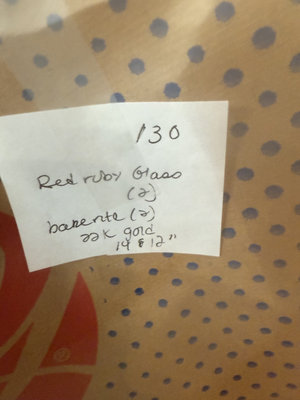 130
Red ruby Glass
(2)
bakerite (2)
22K gold
14 & 12"
®